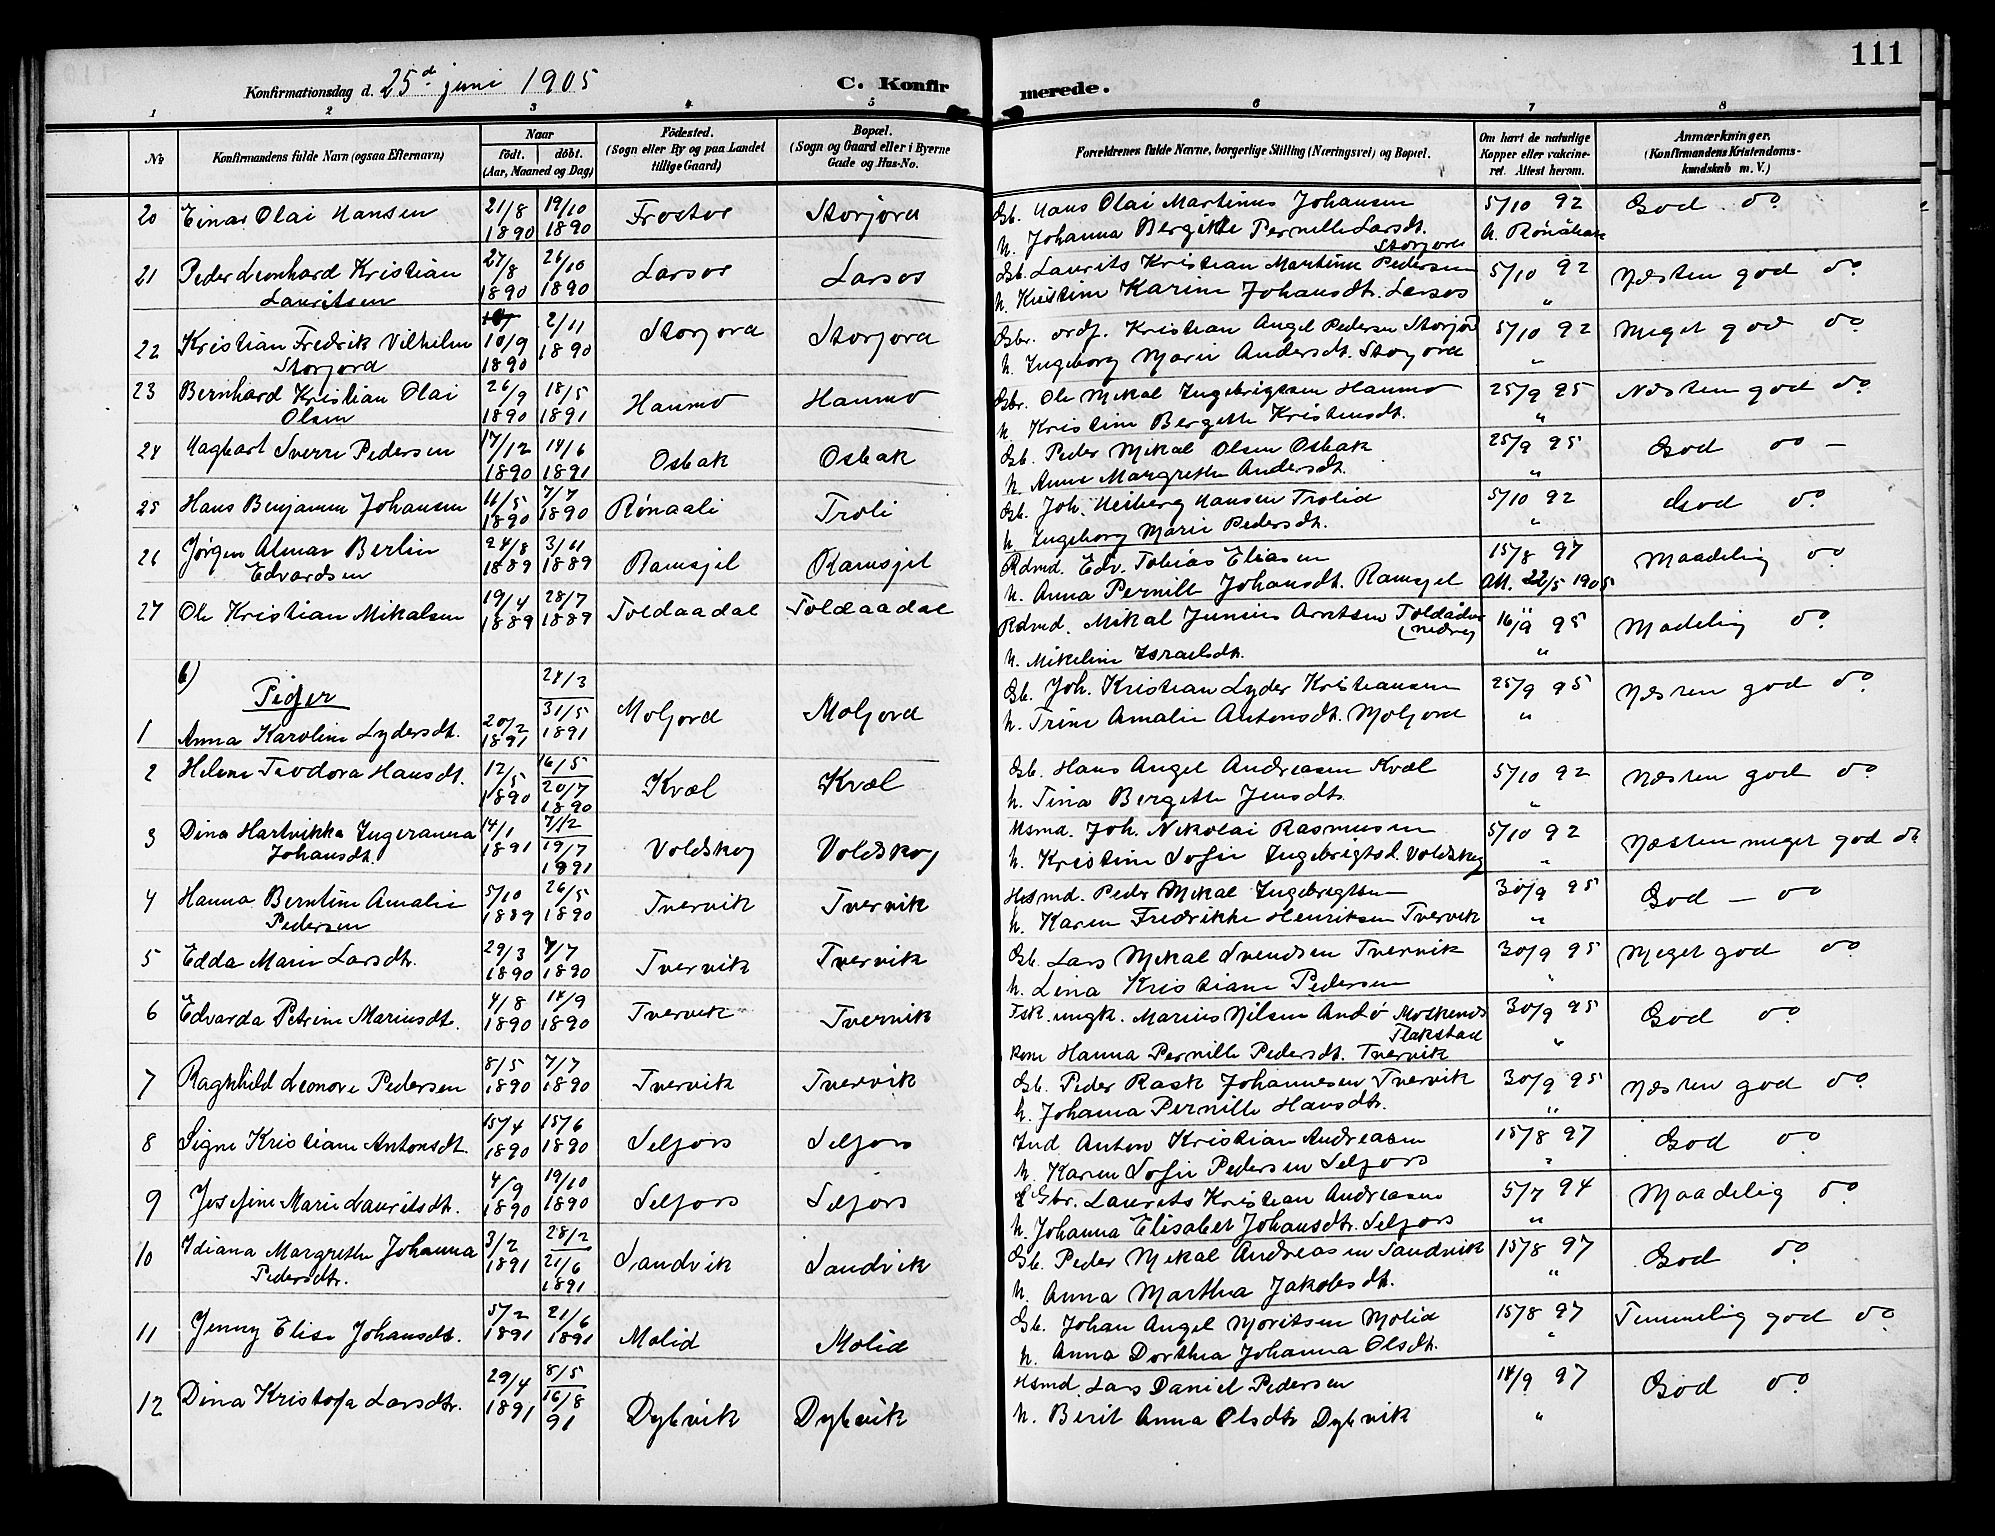 111
Konfirmationsdag d. 25de juni 1905 C. Konfirmerede.
1 2 3 4 5 6 7 8
No Konfirmandens fulde Navn (ogsaa Efternavn) Naar födt. döbt. (Aar, Maaned og Dag) Födested. (Sogn eller By og paa Landet tillige Gaard) Bopæl. (Sogn og Gaard eller i Byerne Gade og Hus-No. Forældrenes fulde Navne, borgerlige Stilling (Næringsvei) og Bopæl. Om havt de naturlige Kopper eller vakcineret. Attest herom. Anmærkninger. (Konfirmandens Kristendomskundskab m. V.)
20 Einar Olai Hansen 21/8 1890 19/10 1890 Storjora Gb. Hans Olai Martinus Johansen 5/10 92 God do
h. Johanna Bergitte Pernille Larsdt. Storjora
21 Peder Leonhard Kristian Lauritsen 27/8 1890 26/10 1890 Larsos Larsos Gb. Laurits Kristian Martin Pedersen 5/10 92 Næsten god do
h. Kristine Karine Johansdt. Larsos "
22 Kristian Fredrik Vilhelm Storjord 10/9 1890 2/11 1890 Storjora Storjora Gbr. ordf. Kristian Angel Pedersen Storjord 5/10 92 Meget god do
h. Ingeborg Marie Andersdt. Storjora "
23 Bernhard Kristian Olai Olsen 26/9 1890 18/5 1891 Haumo Haumo Gbr. Ole Mikal Ingebrigtsen Haumo 25/9 95 Næsten god do
h. Kristine Bergette Kristensdt. "
24 Hagbart Sverre Pedersen 17/12 1890 14/6 1891 Osbak Osbak Gb. Peder Mikal Olsen Osbak 25/9 95 God do
h. Anne Margrethe Andersdt. "
25 Hans Benjamin Johansen 16/5 1890 7/7 1890 Rønaali Troli Gb. Joh. Heiberg Hansen Trolid 5/10 92 God do
h. Ingeborg Marie Pedersdt. "
26 Jørgen Almar Berlin Edvardsen 24/8 1889 3/11 1889 Ramsjel Ramsjel Rdmd. Edv. Tobias Eliasen 15/8 97 Maadelig do
h. Anna Pernille Johansdt. Ramsjel Att. 22/5 1905
27 Ole Kristian Mikalsen 19/4 1889 28/7 1889 Toldaadal Toldaadal Rdmd. Mikal Junius Arntsen 16/9 95 Madelig do
h. Mikeline Israelsdt. "
b) Piger
1 Anna Karoline Lydersdt. 20/2 1891 24/3 31/5 1891 Moljord Moljord Gb. Joh. Kristian Lyder Kristiansen 25/9 95 Næsten god do
h. Trine Amalie Antonsdt. Moljord "
2 Helene Teodora Hansdt. 12/5 1890 16/5 20/7 1890 Kvæl Kvæl Gb. Hans Angel Andreasen Kvæl 5/10 92 Næsten god do
h. Tina Bergette Jensdt. "
3 Dina Hartvikka Ingeranna Johansdt. 14/1 1891 7/12 19/7 1891 Voldskog Voldskog Hsmd. Joh. Nikolai Rasmussen 5/10 92 Næsten meget god do
h. Kristine Sofie Ingebrigtsd. Voldskog "
4 Hanna Berntine Amalie Pedersen 5/10 1889 26/5 1890 Tvervik Tvervik Hsmd. Peder Mikal Ingebrigtsen 30/9 95 God — do
h. Karen Fredrikke Henriksen Tvervik "
5 Edda Marie Larsdt. 29/3 1890 7/7 1890 Tvervik Tvervik Gb. Lars Mikal Svendsen Tvervik 30/9 95 Meget god do
h. Lena Kristiane Pedersen "
6 Edvarda Petrine Mariusdt. 4/8 1890 14/9 1890 Tvervik Tvervik Fsk. ungk. Marius Nilsen Andø Flakstad 30/9 95 God do
Hanna Pernille Pedersdt. Tvervik "
7 Ragnhild Leonore Pedersen 8/5 1890 7/7 1890 Tvervik Tvervik Gb. Peder Rask Johannesen Tvervik 30/9 95 Næsten god do
h. Johanna Pernille Hansdtr. "
8 Signe Kristiane Antonsdt. 15/4 1890 15/6 1890 Selfors Selfors Ind. Anton Kristian Andreasen 15/8 97 God do
h. Karen Sofie Pedersen Selfors "
9 Josefine Marie Lauritsdt. 4/9 1890 19/10 1890 Selfors Selfors Gbr. Laurits Kristian Andreasen 5/7 94 Maadelig do
h. Johanna Elisabet Johansdtr. Selfors "
10 Idiana Margrethe Johanna Pedersdtr. 3/2 1891 28/2 21/6 1891 Sandvik Sandvik Gb. Peder Mikal Andreasen Sandvik 15/8 97 God do
h. Anna Martha Jakobsdt. "
11 Jenny Elise Johansdt. 5/2 1891 21/6 1891 Molid Molid Gb. Johan Angel Moritsen Molid 15/8 97 Temmelig god do
h. Anna Dorthea Johanna Olsdt. "
12 Dina Kristofa Larsdtr. 29/4 1891 8/5 16/8 91 Dybvik Dybvik Hsmd. Lars Daniel Pedersen 14/9 97 God do
h. Berit Anna Olsdtr Dybvik "